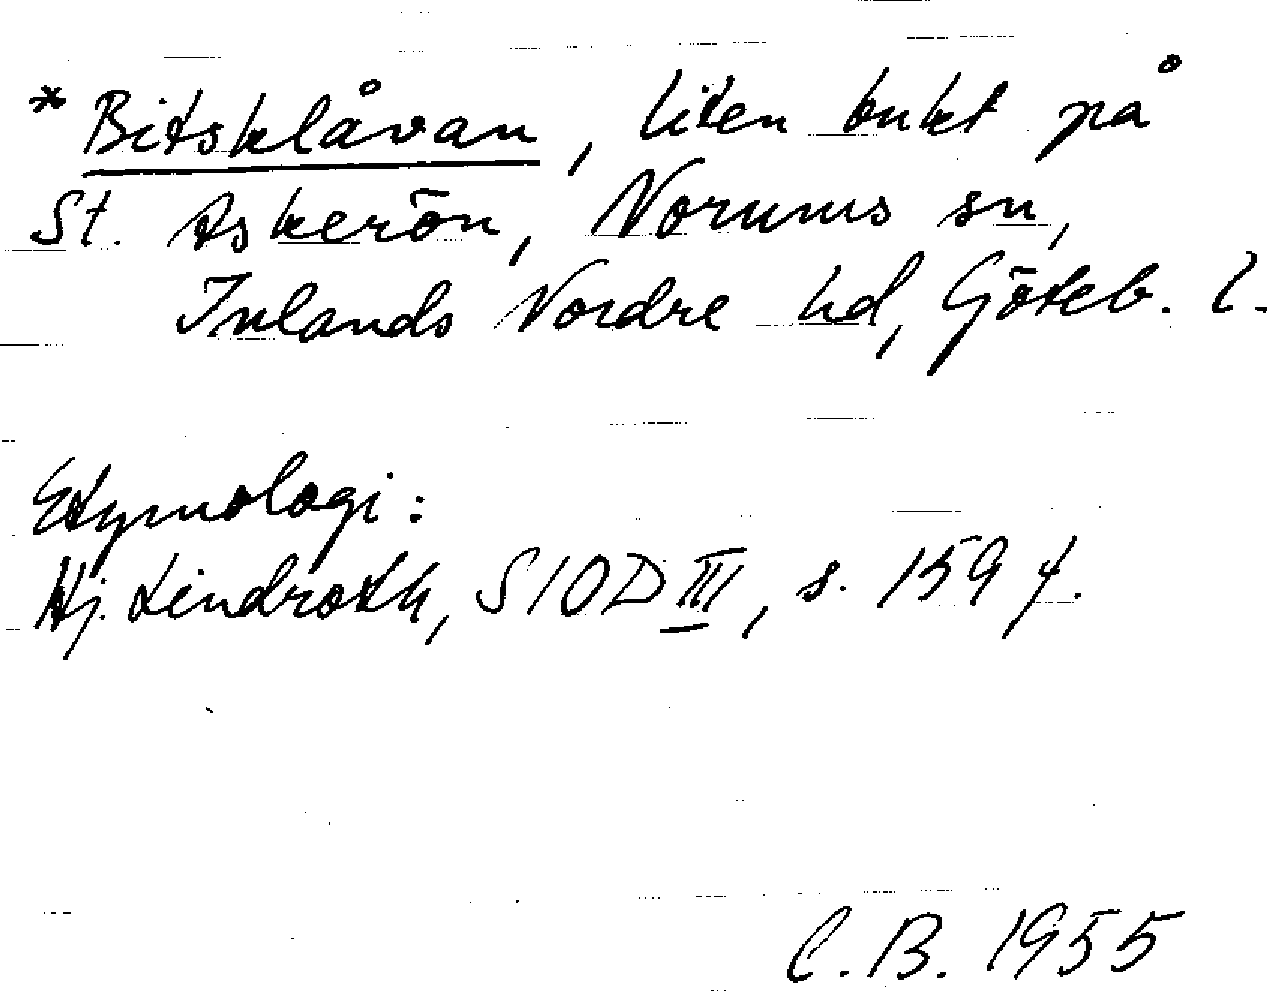 * Bitsklåvan, liten bukt på
St. Askerön, Norums sn,
Inlands Nordre hd, Göteb. l.
Etymologi:
Hj. Lindroth, SIOD III, s. 159 f.
C.B. 1955